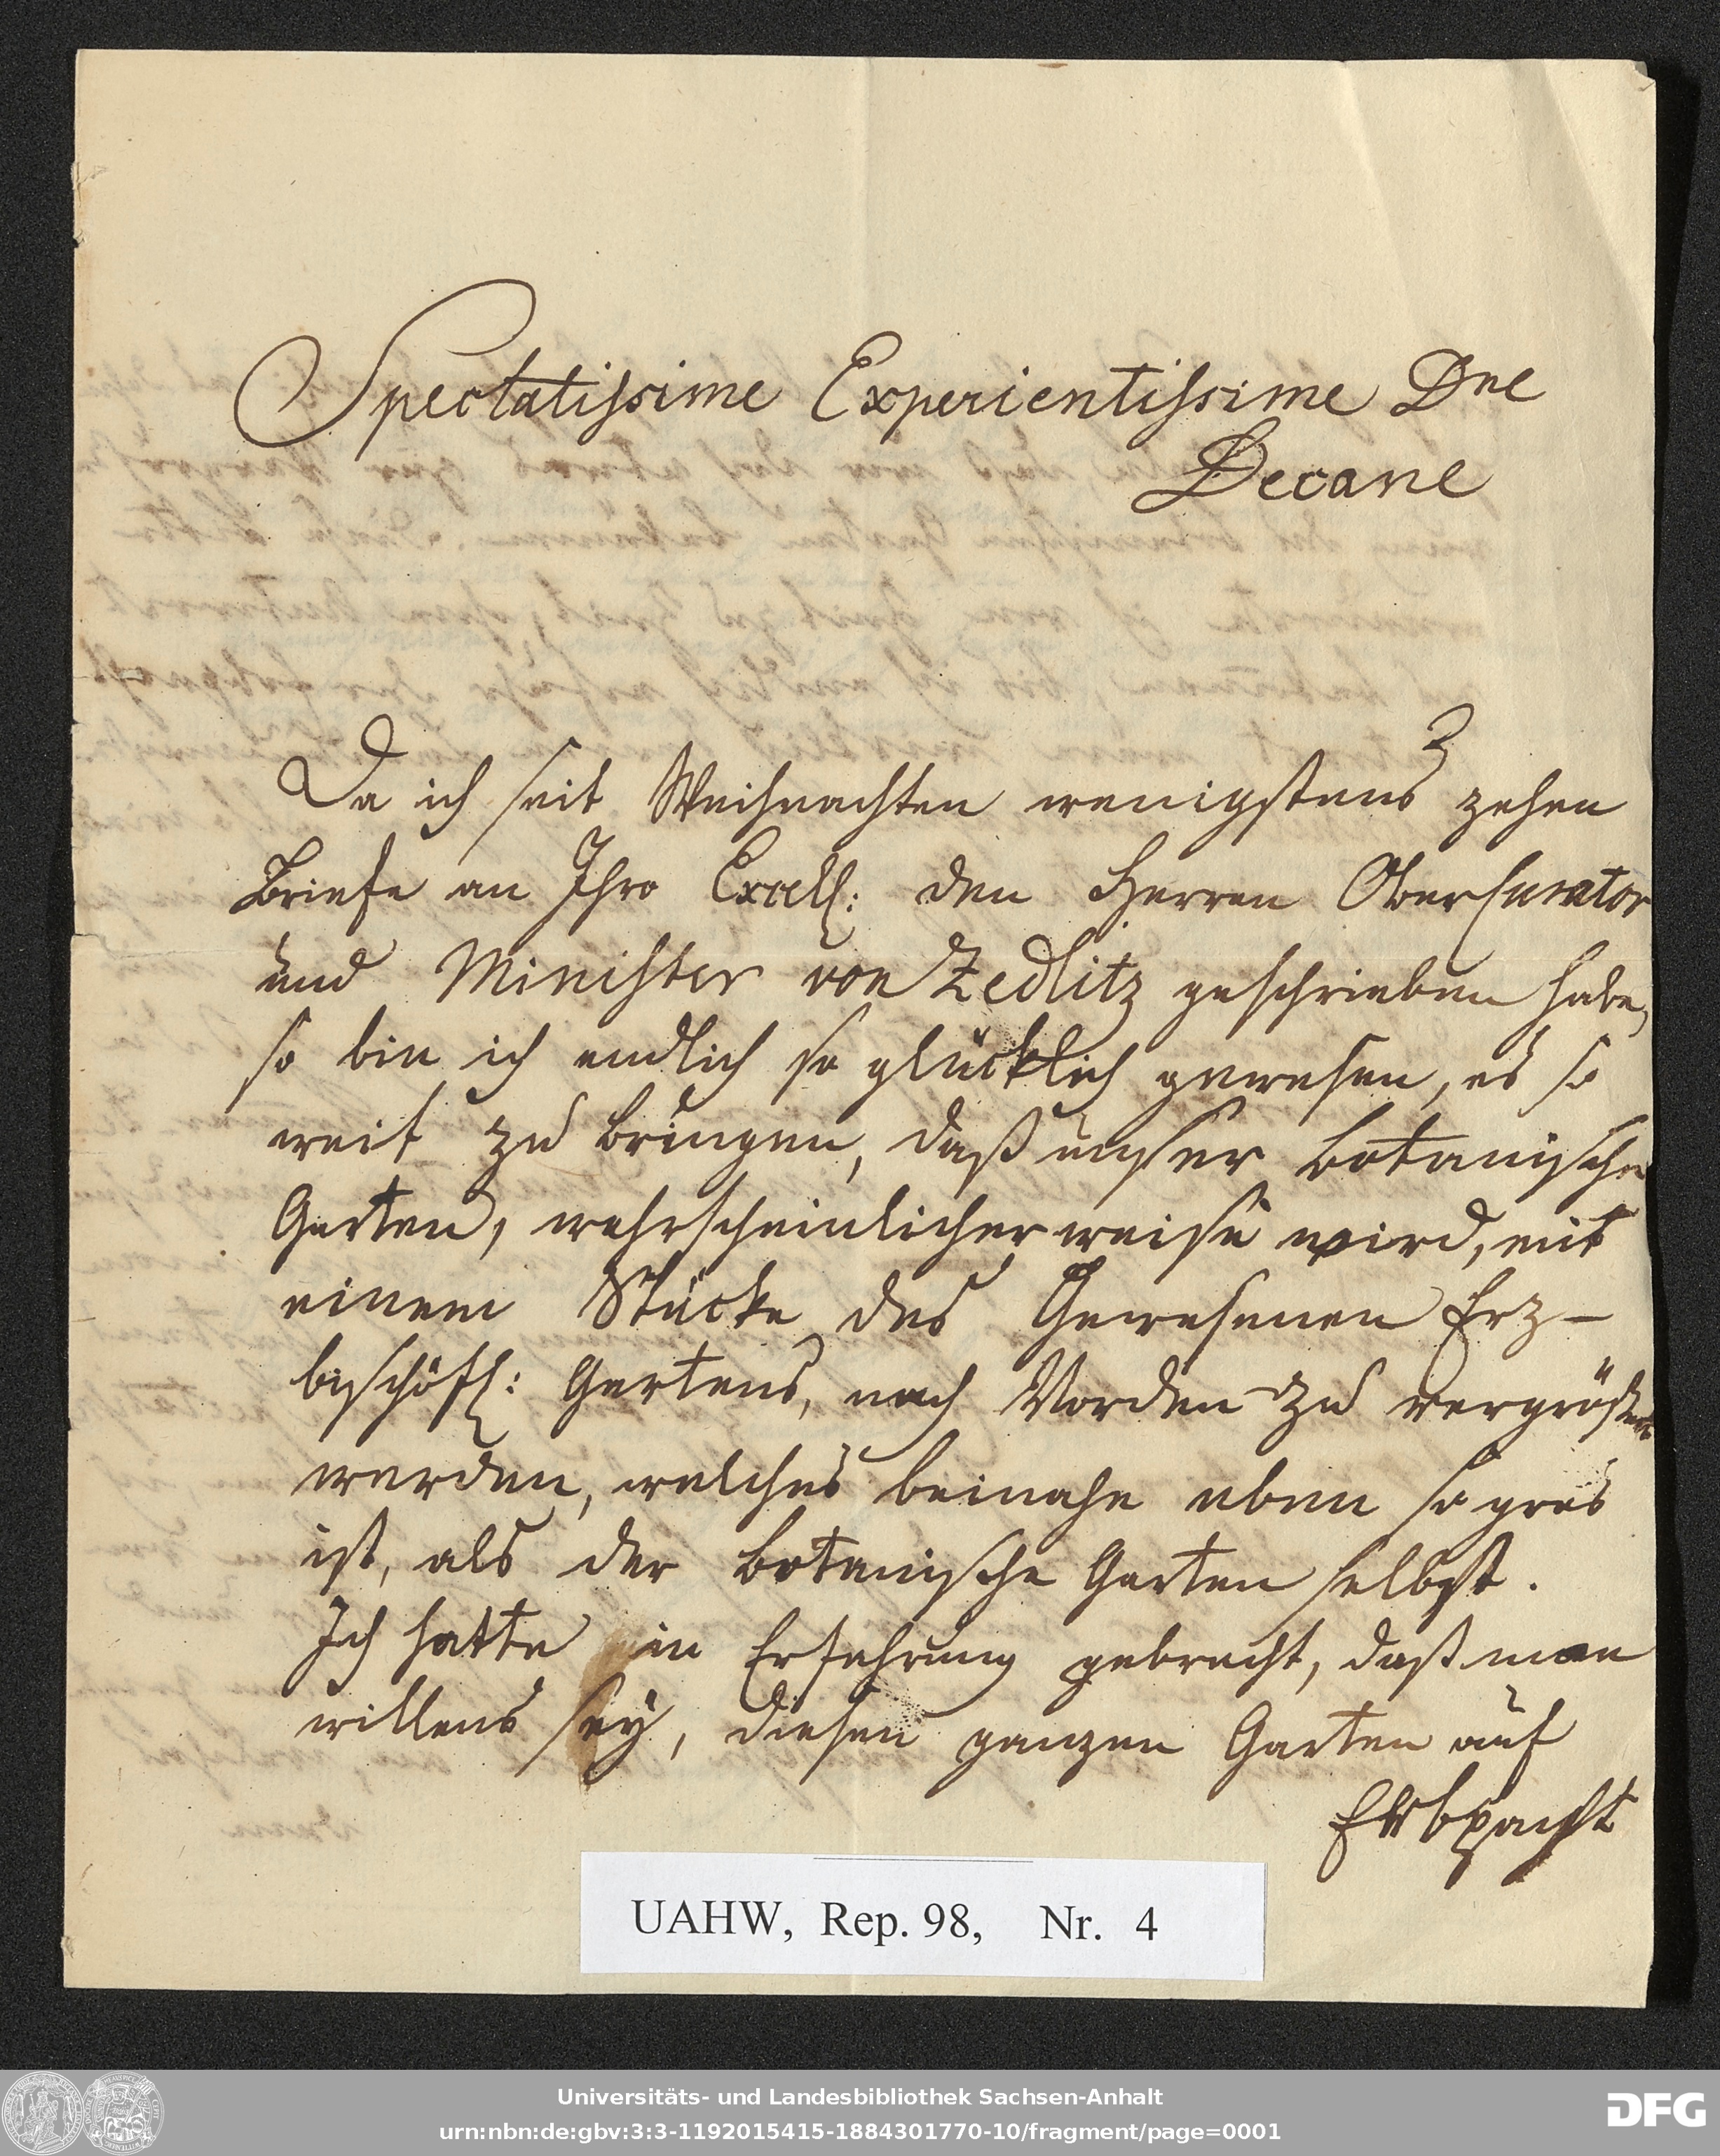 Spectatissime Experientissime Dne
Decane
Da ich seit Weihnachten wenigstens zehen
Briefe an Ihro Excell: den Herren OberCurator
und Minister von Zedlitz geschrieben habe,
so bin ich endlich so glücklich gewesen, es so
weit zu bringen, daß unser botanischer
Garten, wahrscheinlicherweise wird, mit
einem Stücke des Gewesenen Erz-
bischöfl: Gartens, nach Norden zu vergrößert
werden, welches beinahe eben so gros
ist, als der botanische Garten selbst.
Ich hatte in Erfahrung gebracht, daß man
willens sey, diesen ganzen Garten auf
Erbpacht
UAHW, Rep. 98, Nr. 4
Universitäts- und Landesbibliothek Sachsen-Anhalt
urn:nbn:de:gbv:3:3-1192015415-1884301770-10/fragment/page=0001
DFG